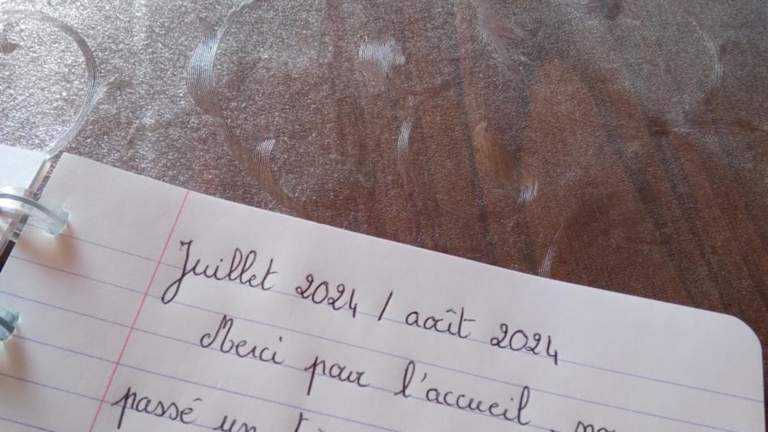 Juillet 2024 / août 2024
Merci pour l'accueil
passé un